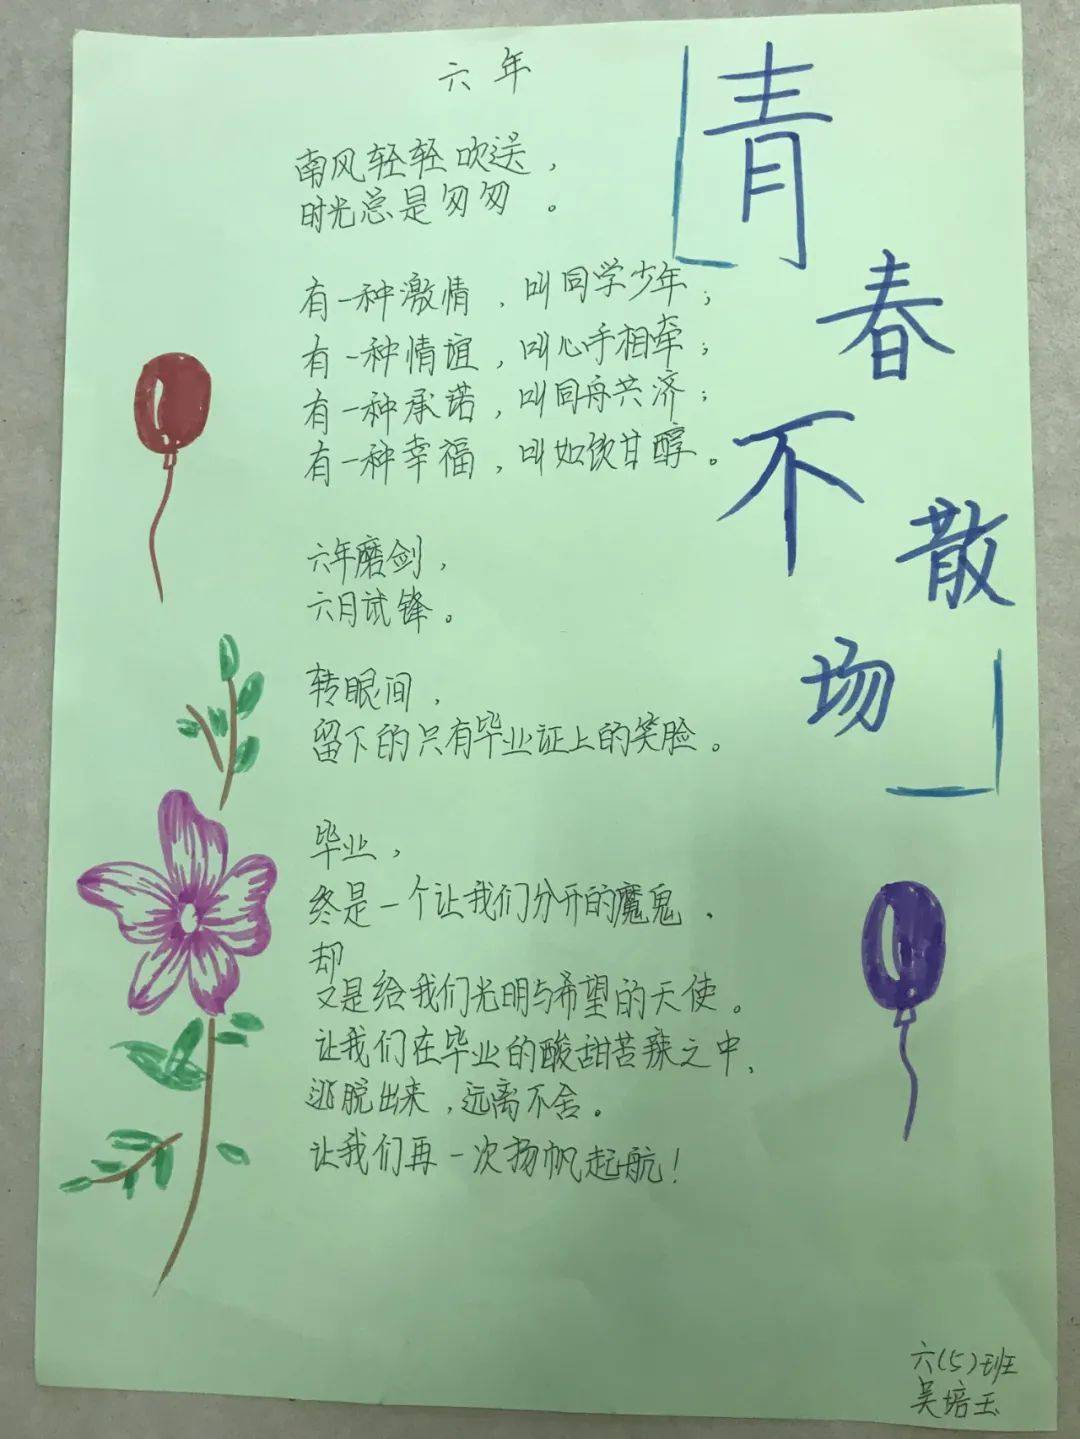 六年
南风轻轻吹送，
时光总是匆匆。
有一种激情，叫同学少年；
有一种情谊，叫心手相牵；
有一种承诺，叫同舟共济；
有一种幸福，叫如饮甘醇。
六年磨剑，
六月试锋。
转眼间，
留下的只有毕业证上的笑脸。
毕业，
终是一个让我们分开的魔鬼，
却
又是给我们光明与希望的天使。
让我们在毕业的酸甜苦辣之中，
逃脱出来，远离不舍。
让我们再一次扬帆起航！
青
春
不
散
场
六(5)班
吴培玉